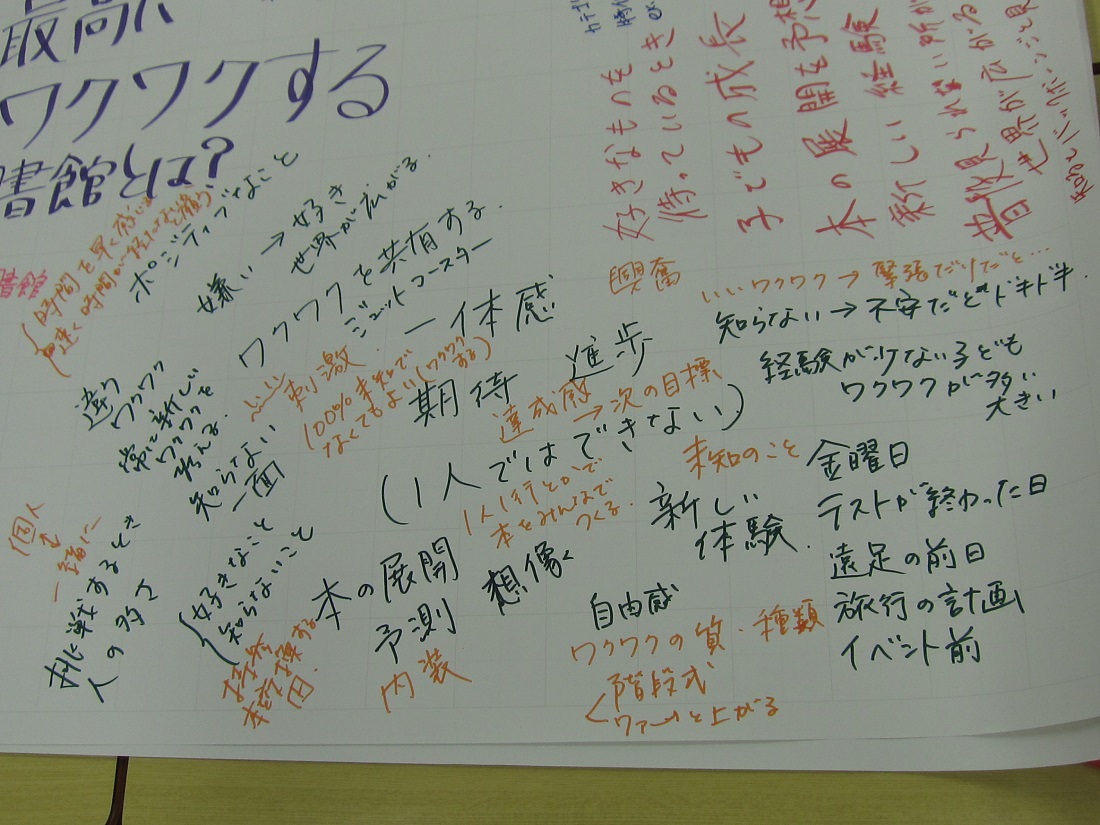 最高に
ワクワクする
書館とは?
書館
ポジティブなこと
嫌い→好き
世界が広がる.
ワクワクを共有する.
ジェットコースター
一体感
刺激
100%未知で
なくてもよい(ワクワクする)
期待
進歩
達成感
→次の目標
(1人ではできない)
1人1行とかで
本をみんなで
つくる.
違う
ワクワク
常に新しい
ワクワクを
考える.
知らない
一面
個人
一緒に
村に戦するとき
人の多さ
好きなこと
知らないこと
本の展開
予測
内装
想像
未知のこと
新しい
体験.
自由感
ワクワクの質・種類
階段式
ワァーッと上がる
金曜日
テストが終わった日
遠足の前日
旅行の計画
イベント前
いいワクワク→緊張だけだと…
知らない→不安だとドキドキ.
経験が少ない子ども
ワクワクが多い
大きい
興奮
好きなものを
待っているとき
子どもの成長
本の展開を予想
新しい経験
普段見られない所が
世界が広がる